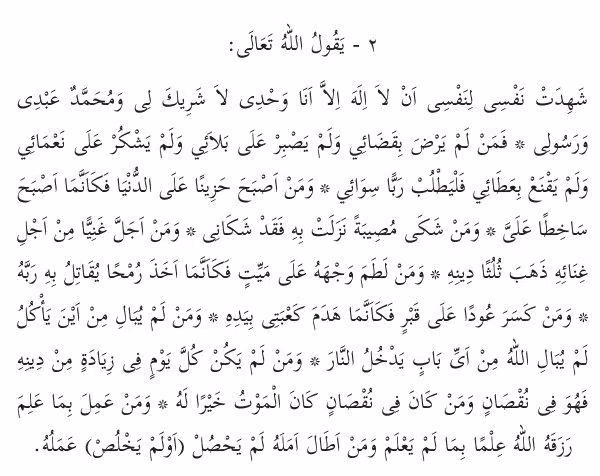 ٢ - يَقُولُ اللّٰهُ تَعَالَى:
شَهِدَتْ نَفْسِى لِنَفْسِى اَنْ لاَ اِلَهَ اِلاَّ اَنَا وَحْدِى لاَ شَرِيكَ لِى وَمُحَمَّدٌ عَبْدِى
وَرَسُولِى * فَمَنْ لَمْ يَرْضَ بِقَضَائِي وَلَمْ يَصْبِرْ عَلَى بَلاَئِي وَلَمْ يَشْكُرْ عَلَى نَعْمَائِي
وَلَمْ يَقْنَعْ بِعَطَائِي فَلْيَطْلُبْ رَبًّا سِوَائِي * وَمَنْ اَصْبَحَ حَزِينًا عَلَى الدُّنْيَا فَكَاَنَّمَا اَصْبَحَ
سَاخِطًا عَلَىَّ * وَمَنْ شَكَى مُصِيبَةً نَزَلَتْ بِهِ فَقَدْ شَكَانِى * وَمَنْ اَجَلَّ غَنِيًّا مِنْ اَجْلِ
غِنَائِهِ ذَهَبَ ثُلُثَا دِينِهِ * وَمَنْ لَطَمَ وَجْهَهُ عَلَى مَيِّتٍ فَكَاَنَّمَا اَخَذَ رُمْحًا يُقَاتِلُ بِهِ رَبَّهُ
* وَمَنْ كَسَرَ عُودًا عَلَى قَبْرٍ فَكَاَنَّمَا هَدَمَ كَعْبَتِى بِيَدِهِ * وَمَنْ لَمْ يُبَالِ مِنْ اَيْنَ يَأْكُلُ
لَمْ يُبَالِ اللّٰهُ مِنْ اَىِّ بَابٍ يَدْخُلُ النَّارَ * وَمَنْ لَمْ يَكُنْ كُلَّ يَوْمٍ فِى زِيَادَةٍ مِنْ دِينِهِ
فَهُوَ فِى نُقْصَانٍ وَمَنْ كَانَ فِى نُقْصَانٍ كَانَ الْمَوْتُ خَيْرًا لَهُ * وَمَنْ عَمِلَ بِمَا عَلِمَ
رَزَقَهُ اللّٰهُ عِلْمًا بِمَا لَمْ يَعْلَمْ وَمَنْ اَطَالَ اَمَلَهُ لَمْ يَحْصُلْ (اَوْلَمْ يَخْلُصْ) عَمَلُهُ.